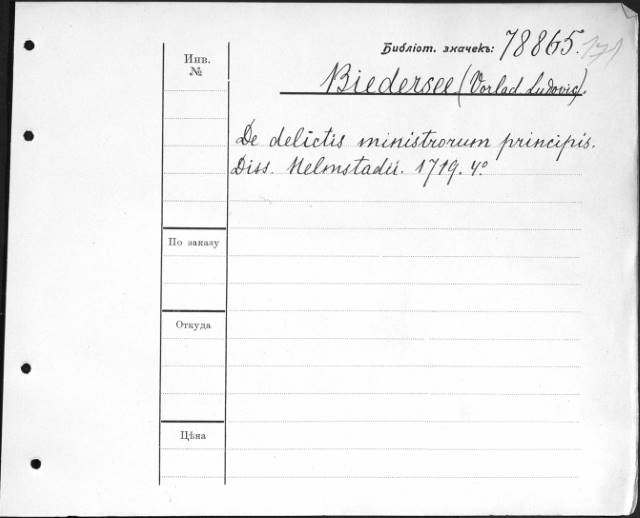 Библіот. значекъ: 78865. 171
Инв. №
Biedersee (Vorlad. Ludovic).
De delictis ministrorum principis.
Diss. Helmstadii. 1719. 4°
По заказу
Откуда
Цѣна